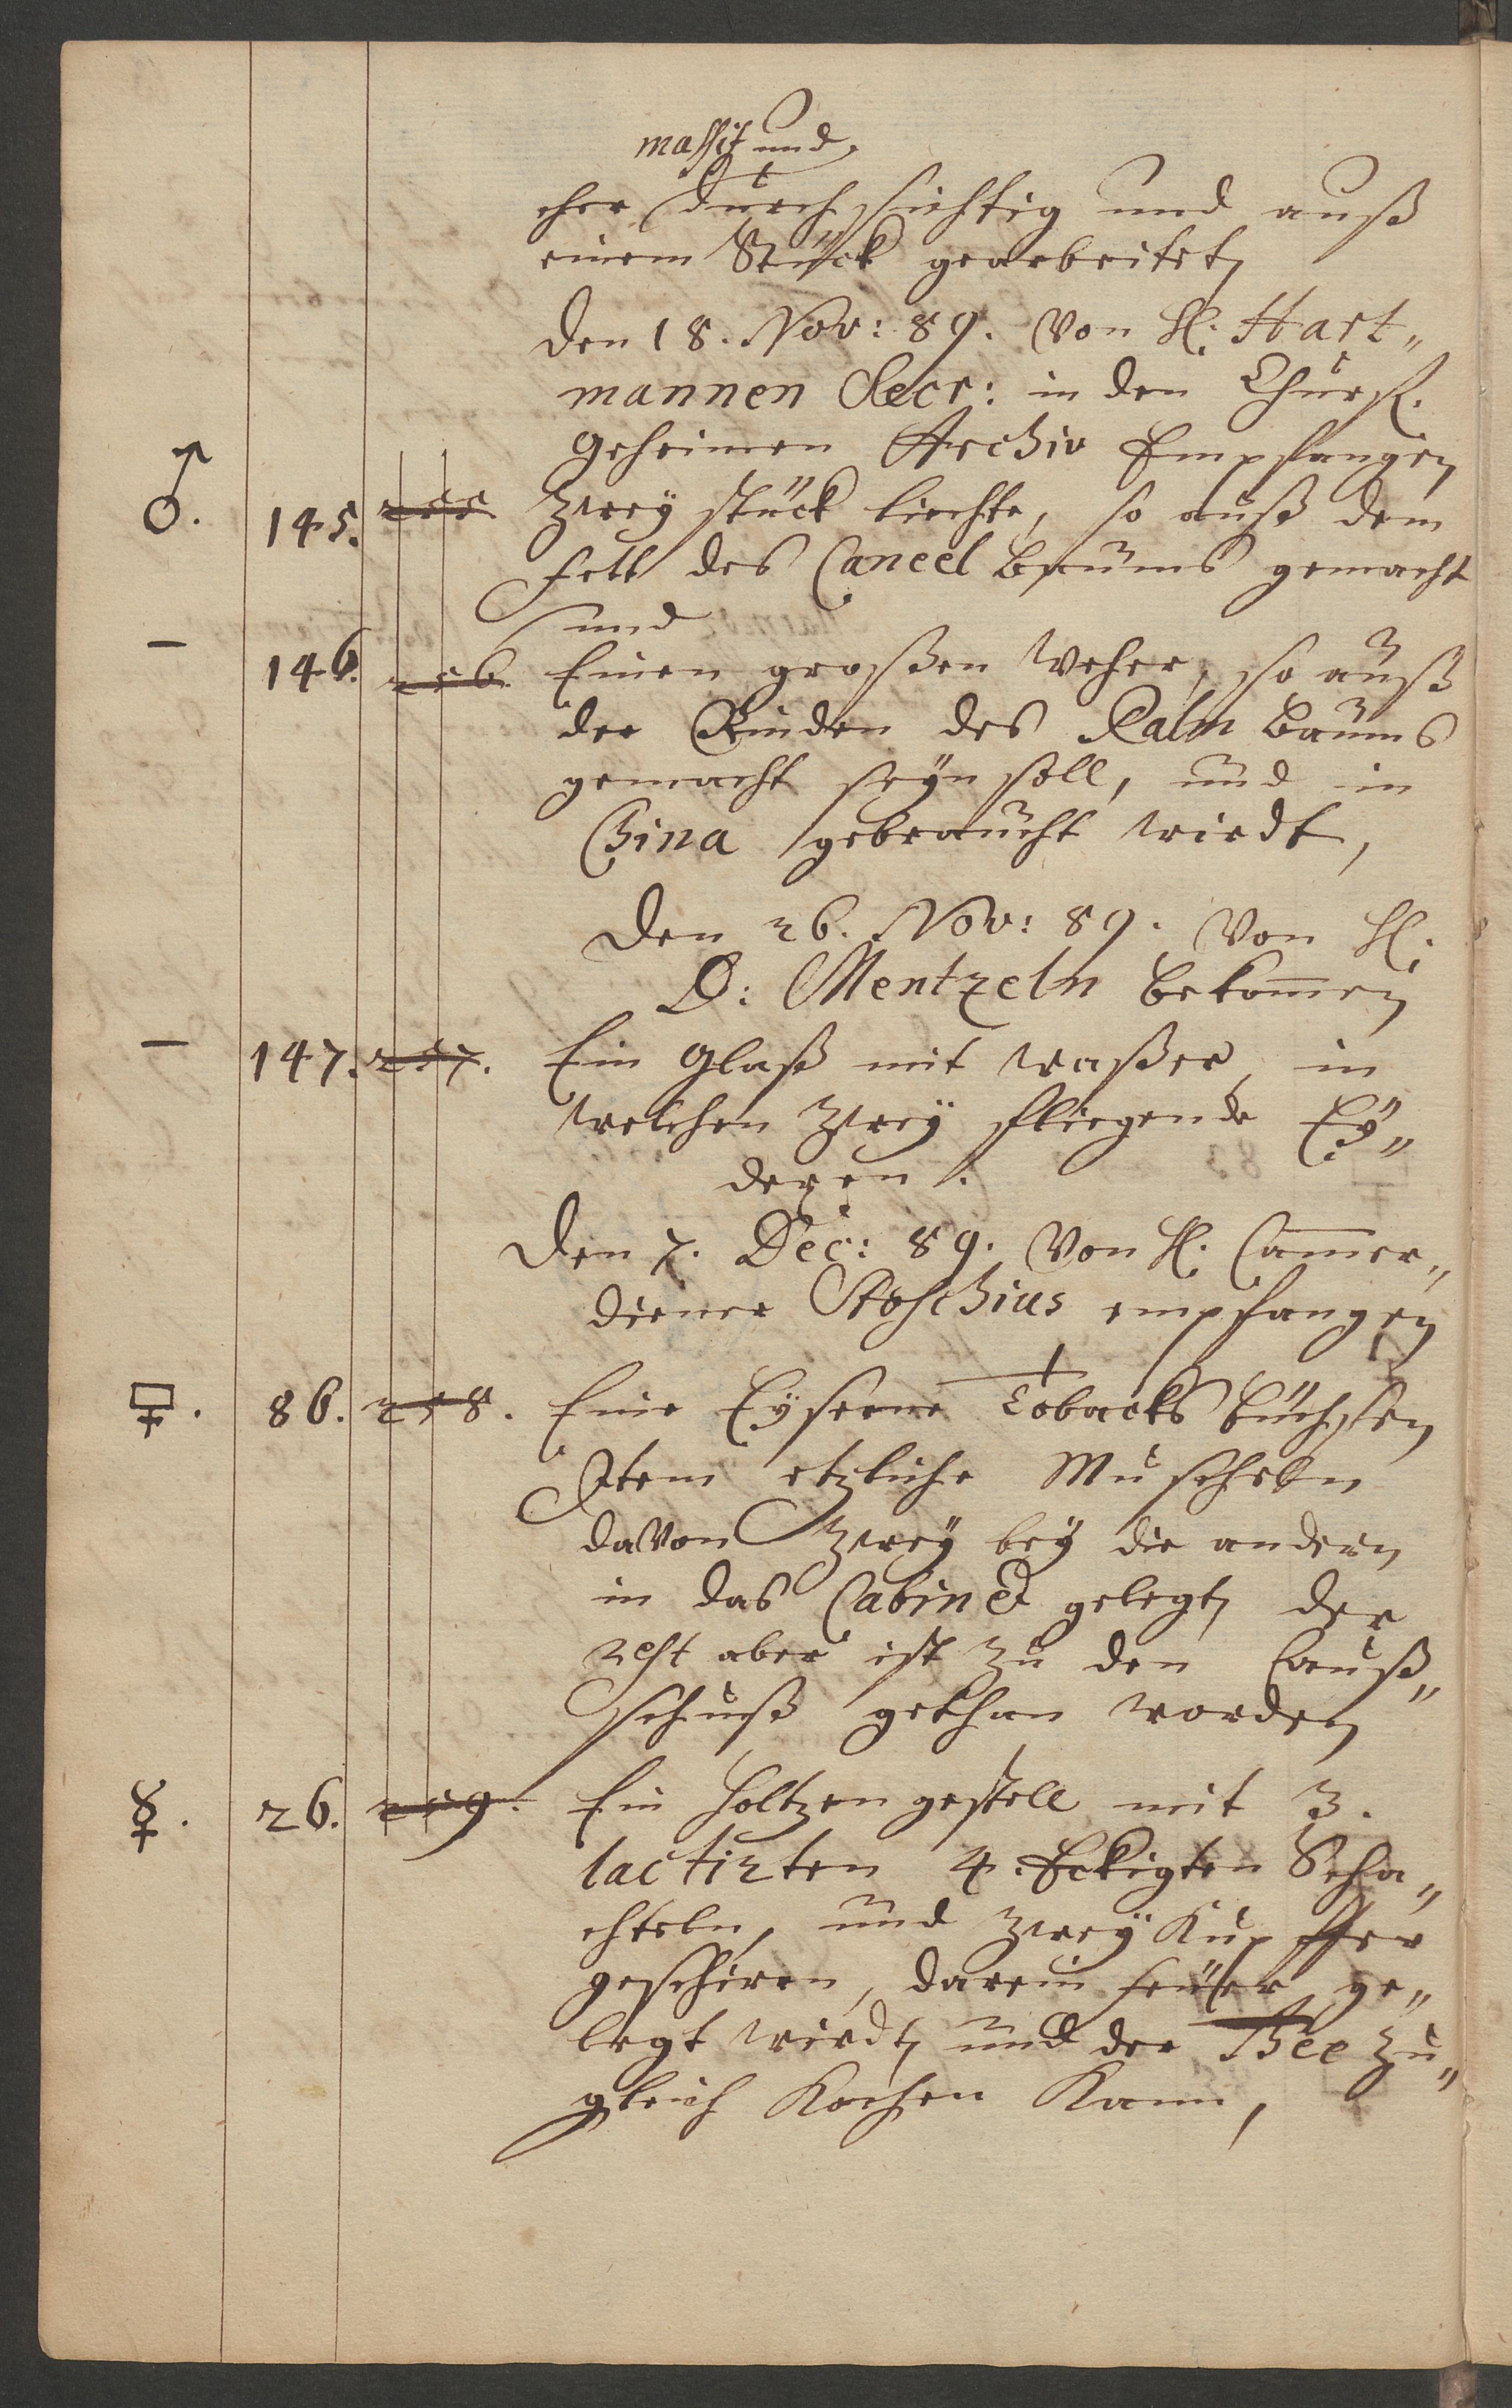 massif und
cher durchsichtig und auß
einem Stück gearbeitet,
Den 18. Nov: 89. Von H: Hart„
mannen Secr: in den Churf.
Geheimen Archiv Empfangen
♂. 145. Zwey stück liechte, so auß dem
fett des Caneel Baums gemacht
und
— 146. Einen großen Weher, so auß
der Rinden des Palm Baums
gemacht seyn soll, und in
China gebraucht wirdt,
Den 26. Nov: 89. Von H:
D: Mentzeln bekom̄en
— 147. 257. Ein Glaß mit waßer, in
welchen Zwey fliegende Ey„
dexen.
Den 7. Dec: 89. Von H: Cam̄er„
diener Stoschius empfangen
86. 258. Eine Eyserne Tobacks büchsen,
Item etzliche Muscheln
davon zwey bey die andern
in das Cabinet gelegt, der
rest aber ist zu den Auß„
schuß gethan worden
☿. 26. 259. Ein holtzen gestell mit 3.
lactirten 4. Eckigten Scha„
chteln, und zwey Kupffer
geschirren, darein feüer ge„
legt wirdt, und der Thee zu„
gleich Kochen Kann,